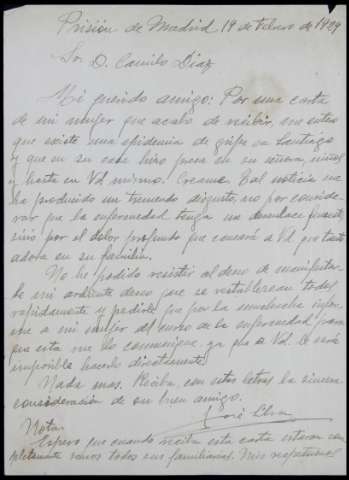 Prisión de Madrid 14 de Febrero de 1929
Sr. D. Camilo Díaz
Mi querido amigo: Por una carta
de mi mujer que acabo de recibir, me entero
que existe una epidemia de gripe en Santiago
y que en su casa hizo presa en su señora, niños
y hasta en Vd mismo. Creame. Tal noticia me
ha producido un tremendo disgusto, no por conside-
rar que la enfermedad tenga un desenlace funesto,
sino por el dolor profundo que causará a Vd que tanto
adora en su familia.
No he podido resistir al deseo de manifestar-
le mi ardiente deseo que se restablezcan todos
rapidamente y pedirle que por la muchacha infor-
me a mi mujer del curso de la enfermedad para
que esta me lo comunique, ya que a Vd. le será
imposible hacerlo directamente.
Nada mas. Reciba, con estas letras la sincera
consideración de su buen amigo.
José
Nota.
Espero que cuando reciba esta carta estaran com-
pletamente sanos todos sus familiares. Mis respetuosos